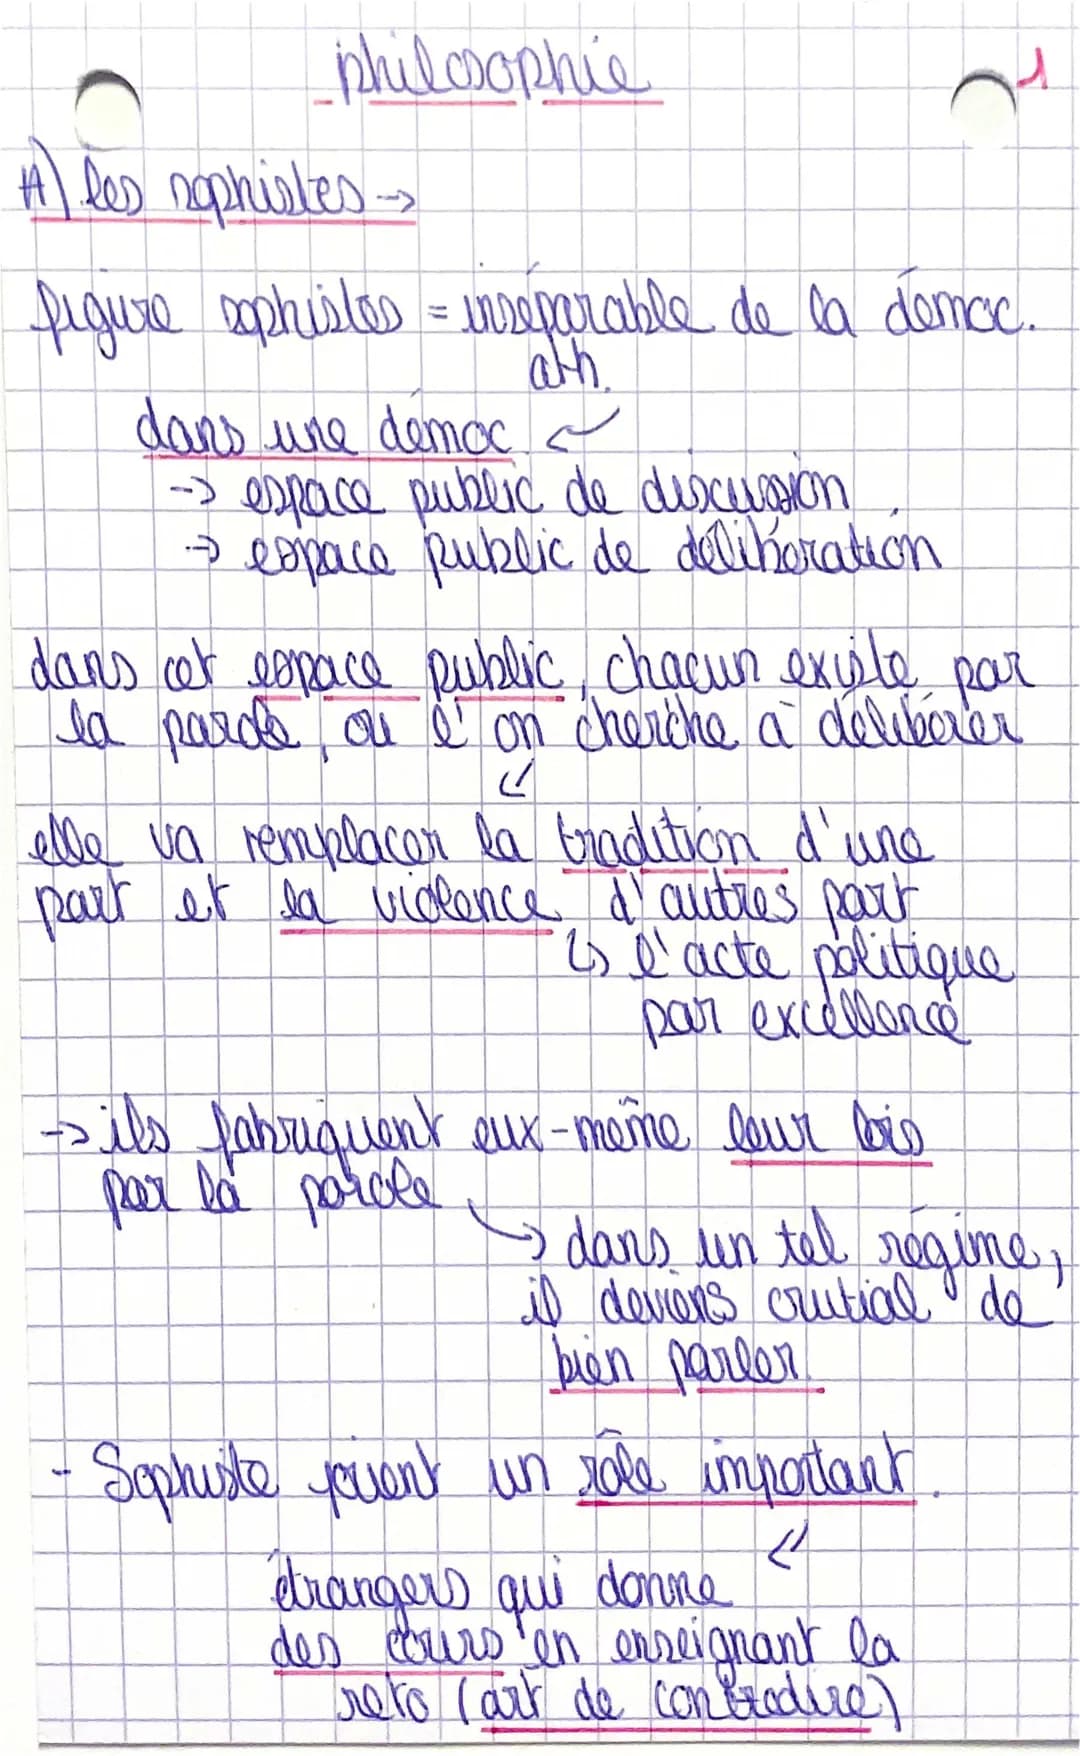 philosophie
1
A) les sophistes ->
figure sophistes = inséparable de la démoc.
ath.
dans une démoc
-> espace public de discussion
-> espace public de délibération
dans cet espace public, chacun existe par
la parole, ou l'on cherche à délibérer
elle va remplacer la tradition d'une
part et la violence d'autres part
↳ l'acte politique
par excellence
-> ils fabriquent eux-même leur lois
par la parole
-> dans un tel régime,
il deviens crutial de
bien parler.
- Sophiste jouent un rôle important.
étrangers qui donne
des cours en enseignant la
reto (art de contredire)